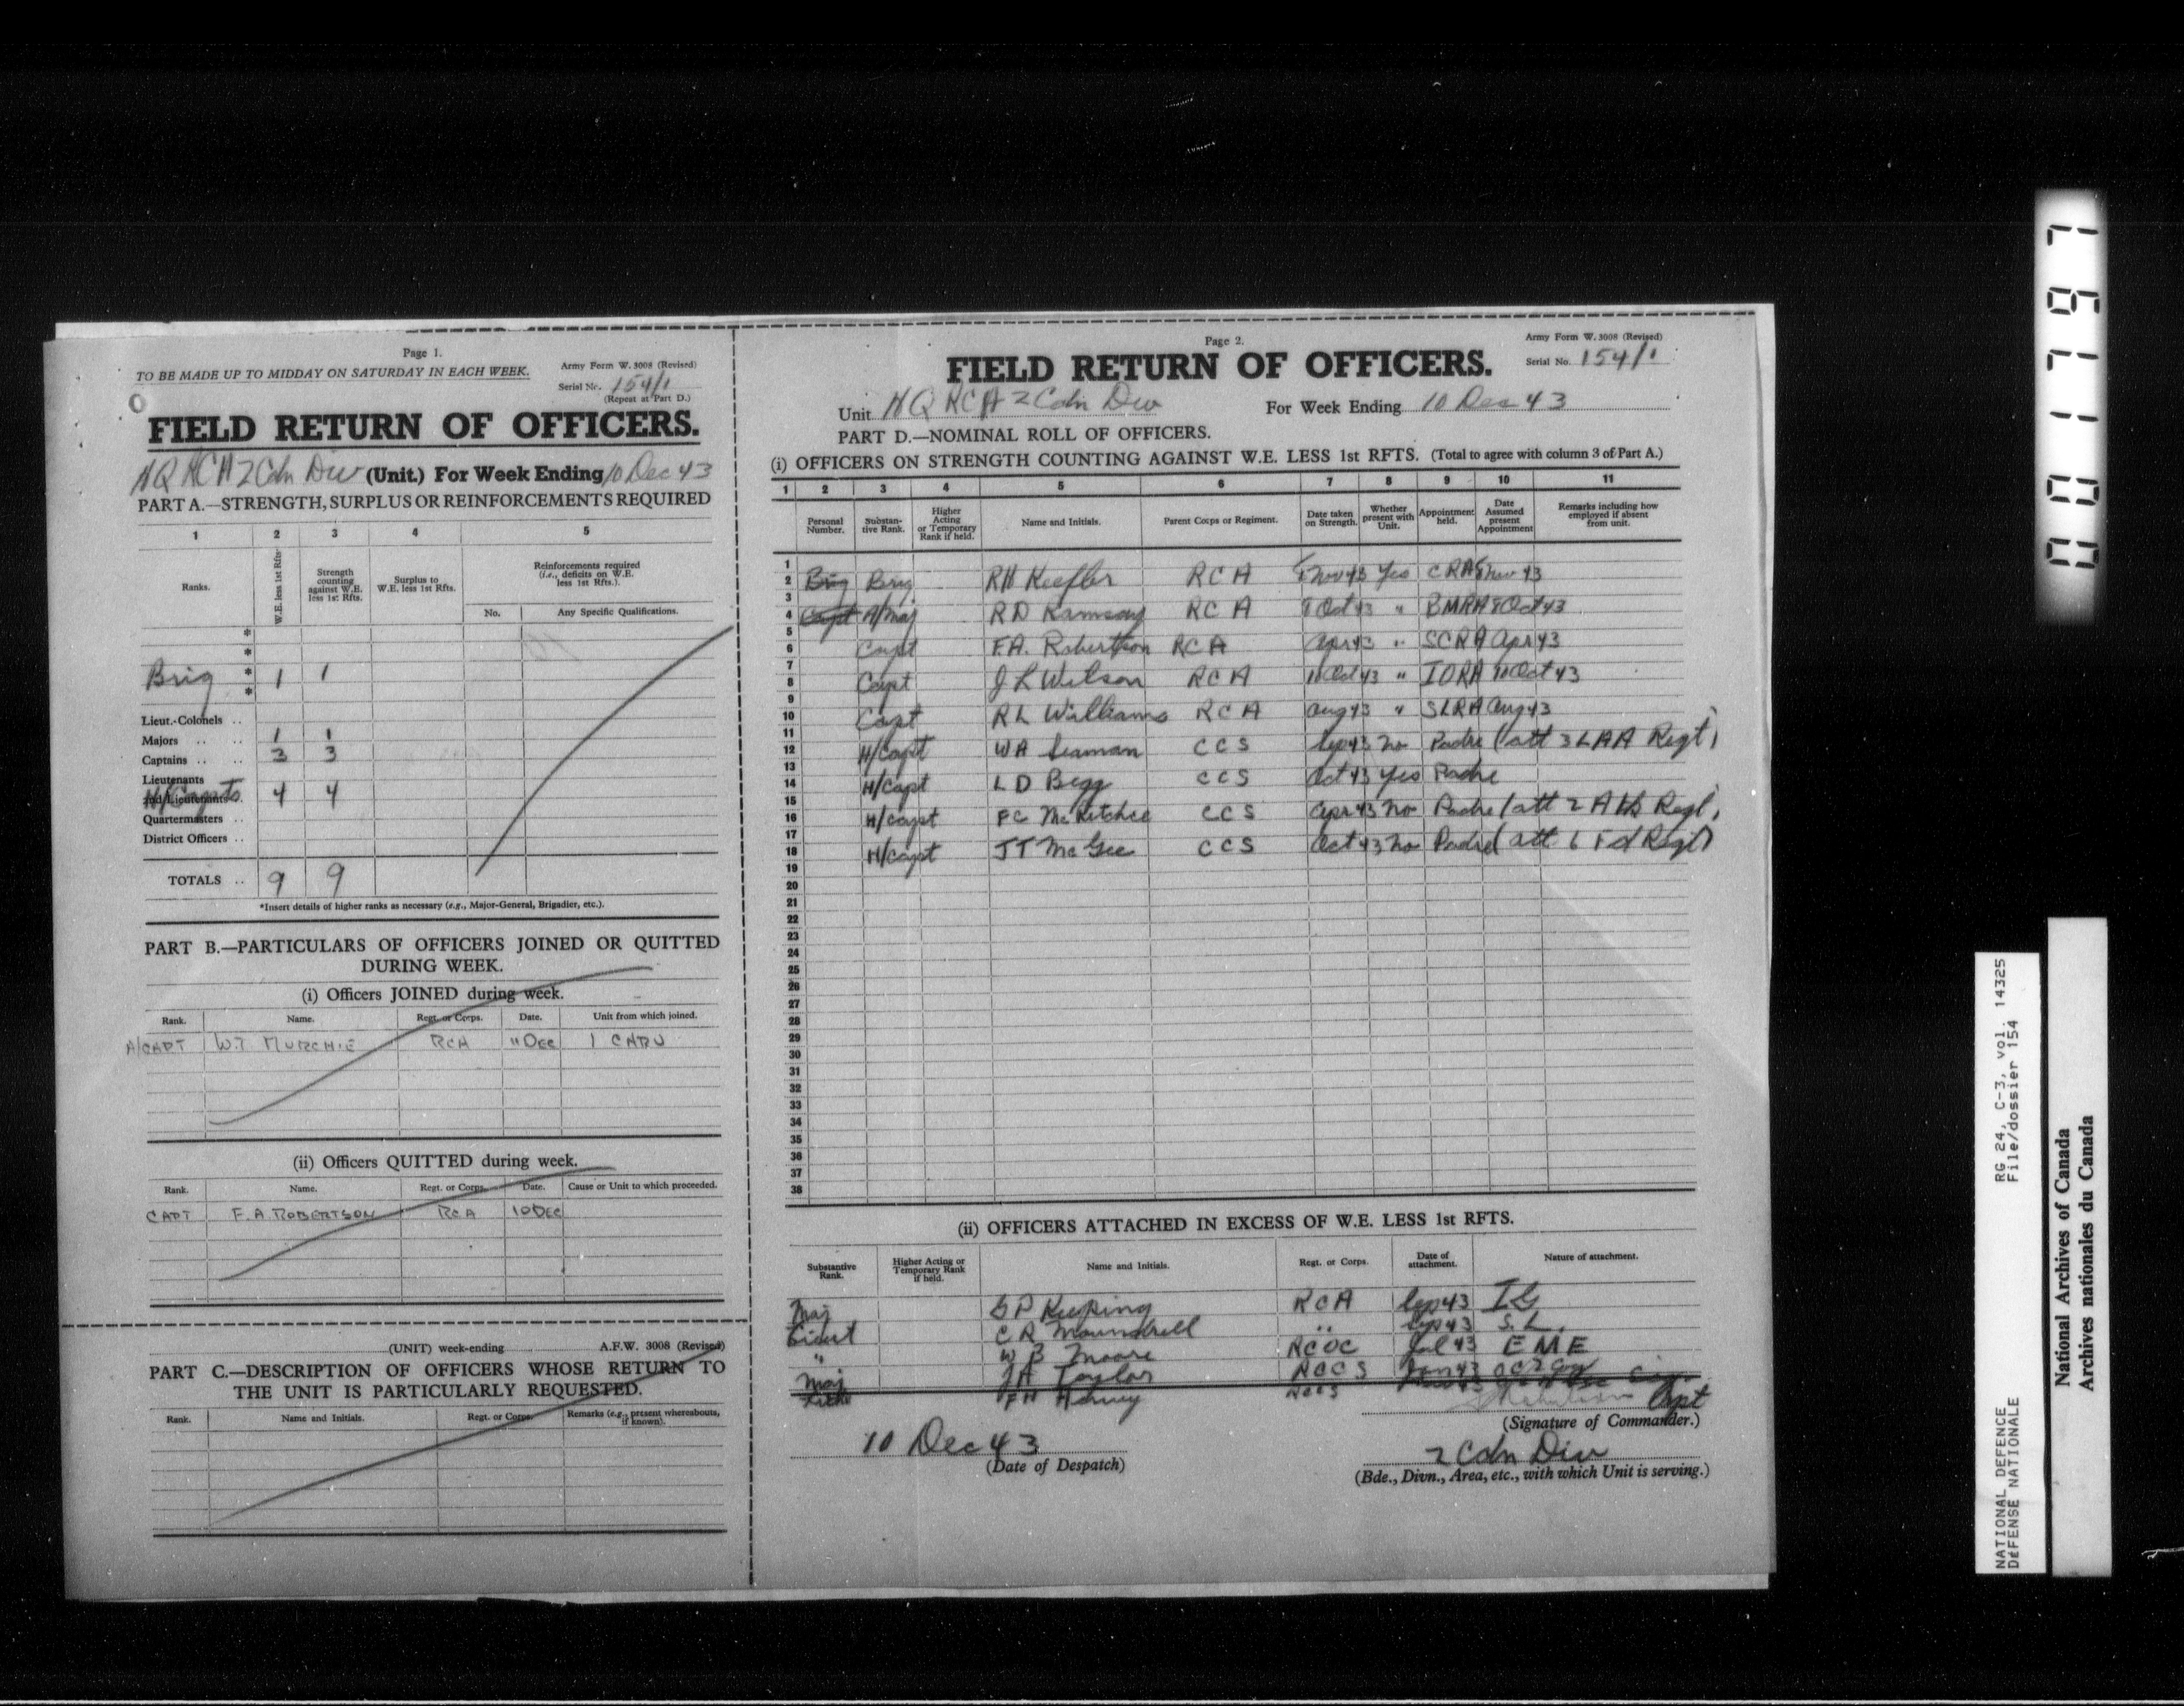 Page 1.
TO BE MADE UP TO MIDDAY ON SATURDAY IN EACH WEEK.
Army Form W. 3008 (Revised)
Serial No. 154/1
(Repeat at Part D.)
FIELD RETURN OF OFFICERS.
HQ RCA 2 Cdn Div (Unit.) For Week Ending 10 Dec 43
PART A.—STRENGTH, SURPLUS OR REINFORCEMENTS REQUIRED
1 2 3 4 5
Ranks.
W.E. less 1st Rfts.
Strength counting against W.E. less 1st Rfts.
Surplus to W.E. less 1st Rfts.
Reinforcements required (i.e., deficits on W.E. less 1st Rfts.).
No. Any Specific Qualifications.
*
*
Brig * 1 1
*
Lieut.-Colonels ..
Majors .. .. 1 1
Captains .. .. 3 3
Lieutenants
H/Capts 4 4
2nd/Lieutenants ..
Quartermasters ..
District Officers ..
TOTALS .. 9 9
*Insert details of higher ranks as necessary (e.g., Major-General, Brigadier, etc.).
PART B.—PARTICULARS OF OFFICERS JOINED OR QUITTED
DURING WEEK.
(i) Officers JOINED during week.
Rank. Name. Regt. or Corps. Date. Unit from which joined.
A/CAPT W.T. MURCHIE RCA 11 DEC 1 CARU
(ii) Officers QUITTED during week.
Rank. Name. Regt. or Corps. Date. Cause or Unit to which proceeded.
CAPT F.A. ROBERTSON RCA 10 DEC
(UNIT) week-ending A.F.W. 3008 (Revised)
PART C.—DESCRIPTION OF OFFICERS WHOSE RETURN TO
THE UNIT IS PARTICULARLY REQUESTED.
Rank. Name and Initials. Regt. or Corps. Remarks (e.g., present whereabouts, if known).
Page 2.
Army Form W. 3008 (Revised)
Serial No. 154/1
FIELD RETURN OF OFFICERS.
Unit HQ RCA 2 Cdn Div For Week Ending 10 Dec 43
PART D.—NOMINAL ROLL OF OFFICERS.
(i) OFFICERS ON STRENGTH COUNTING AGAINST W.E. LESS 1st RFTS. (Total to agree with column 3 of Part A.)
1 2 3 4 5 6 7 8 9 10 11
Personal Number.
Substantive Rank.
Higher Acting or Temporary Rank if held.
Name and Initials.
Parent Corps or Regiment.
Date taken on Strength.
Whether present with Unit.
Appointment held.
Date Assumed present Appointment
Remarks including how employed if absent from unit.
1
2 Brig Brig RH Keefler RCA Nov 43 Yes CRA Nov 43
3
4 Capt A/Maj RD Ramsay RCA 8 Oct 43 " BMRA 8 Oct 43
5
6 Capt F.A. Robertson RCA Apr 43 " SCRA Apr 43
7
8 Capt J L Wilson RCA 11 Oct 43 " IORA 11 Oct 43
9
10 Capt RL Williams RCA Aug 43 " SLRA Aug 43
11
12 H/Capt WA Seaman CCS Sep 43 No Padre (att 3 LAA Regt)
13
14 H/Capt LD Begg CCS Oct 43 Yes Padre
15
16 H/Capt FC McRitchie CCS Apr 43 No Padre (att 2 A Tk Regt)
17
18 H/Capt JT McGee CCS Oct 43 No Padre (att 6 Fd Regt)
19
20
21
22
23
24
25
26
27
28
29
30
31
32
33
34
35
36
37
38
(ii) OFFICERS ATTACHED IN EXCESS OF W.E. LESS 1st RFTS.
Substantive Rank.
Higher Acting or Temporary Rank if held.
Name and Initials.
Regt. or Corps.
Date of attachment.
Nature of attachment.
Maj GP Keeping RCA Sep 43 IG
Lieut CR Moundrell " Sep 43 S.L.
" WB Moore RCOC Jul 43 EME
Maj JA Taylor RCCS Jan 43
FH Harvey RCCS
Capt
(Signature of Commander.)
10 Dec 43
(Date of Despatch)
2 Cdn Div
(Bde., Divn., Area, etc., with which Unit is serving.)
001797
NATIONAL DEFENCE RG 24, C-3, vol. 14325
DÉFENSE NATIONALE File/dossier 154
National Archives of Canada
Archives nationales du Canada